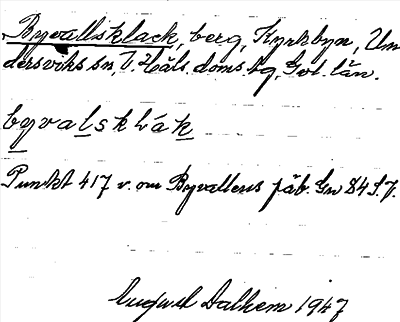 Byvallsklack, berg, Kyrkbyn, Un
dersviks sn, V. Häls. doms. hg, Gvl. län.
byvalsklák
Punkt 417 v. om Byvallens fäb. Gn 84 S.V.
August Dalhem 1947